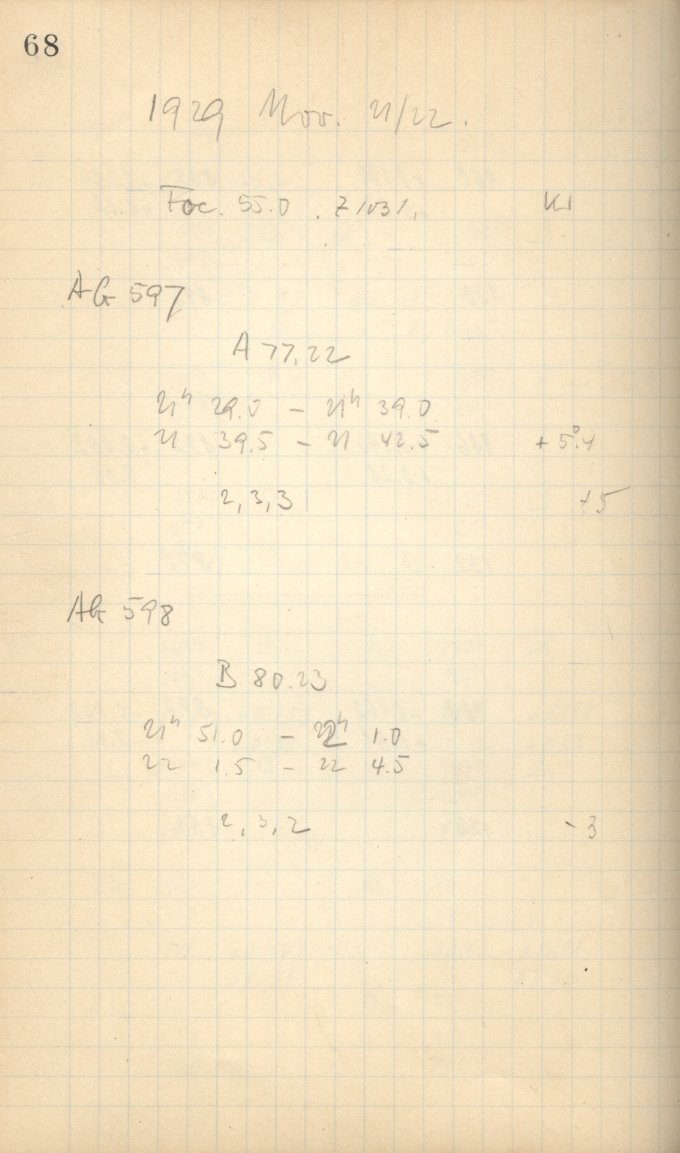 68
1929 Nov. 21/22.
Foc. 55.0 . Z 1031,
AG 597
A 77,22
21h 29.0 – 21h 39.0
21 39.5 – 21 42.5 + 5°.4
2, 3, 3 +5
AG 598
B 80.23
21h 51.0 – 22h 1.0
22 1.5 – 22 4.5
2, 3, 2 - 3